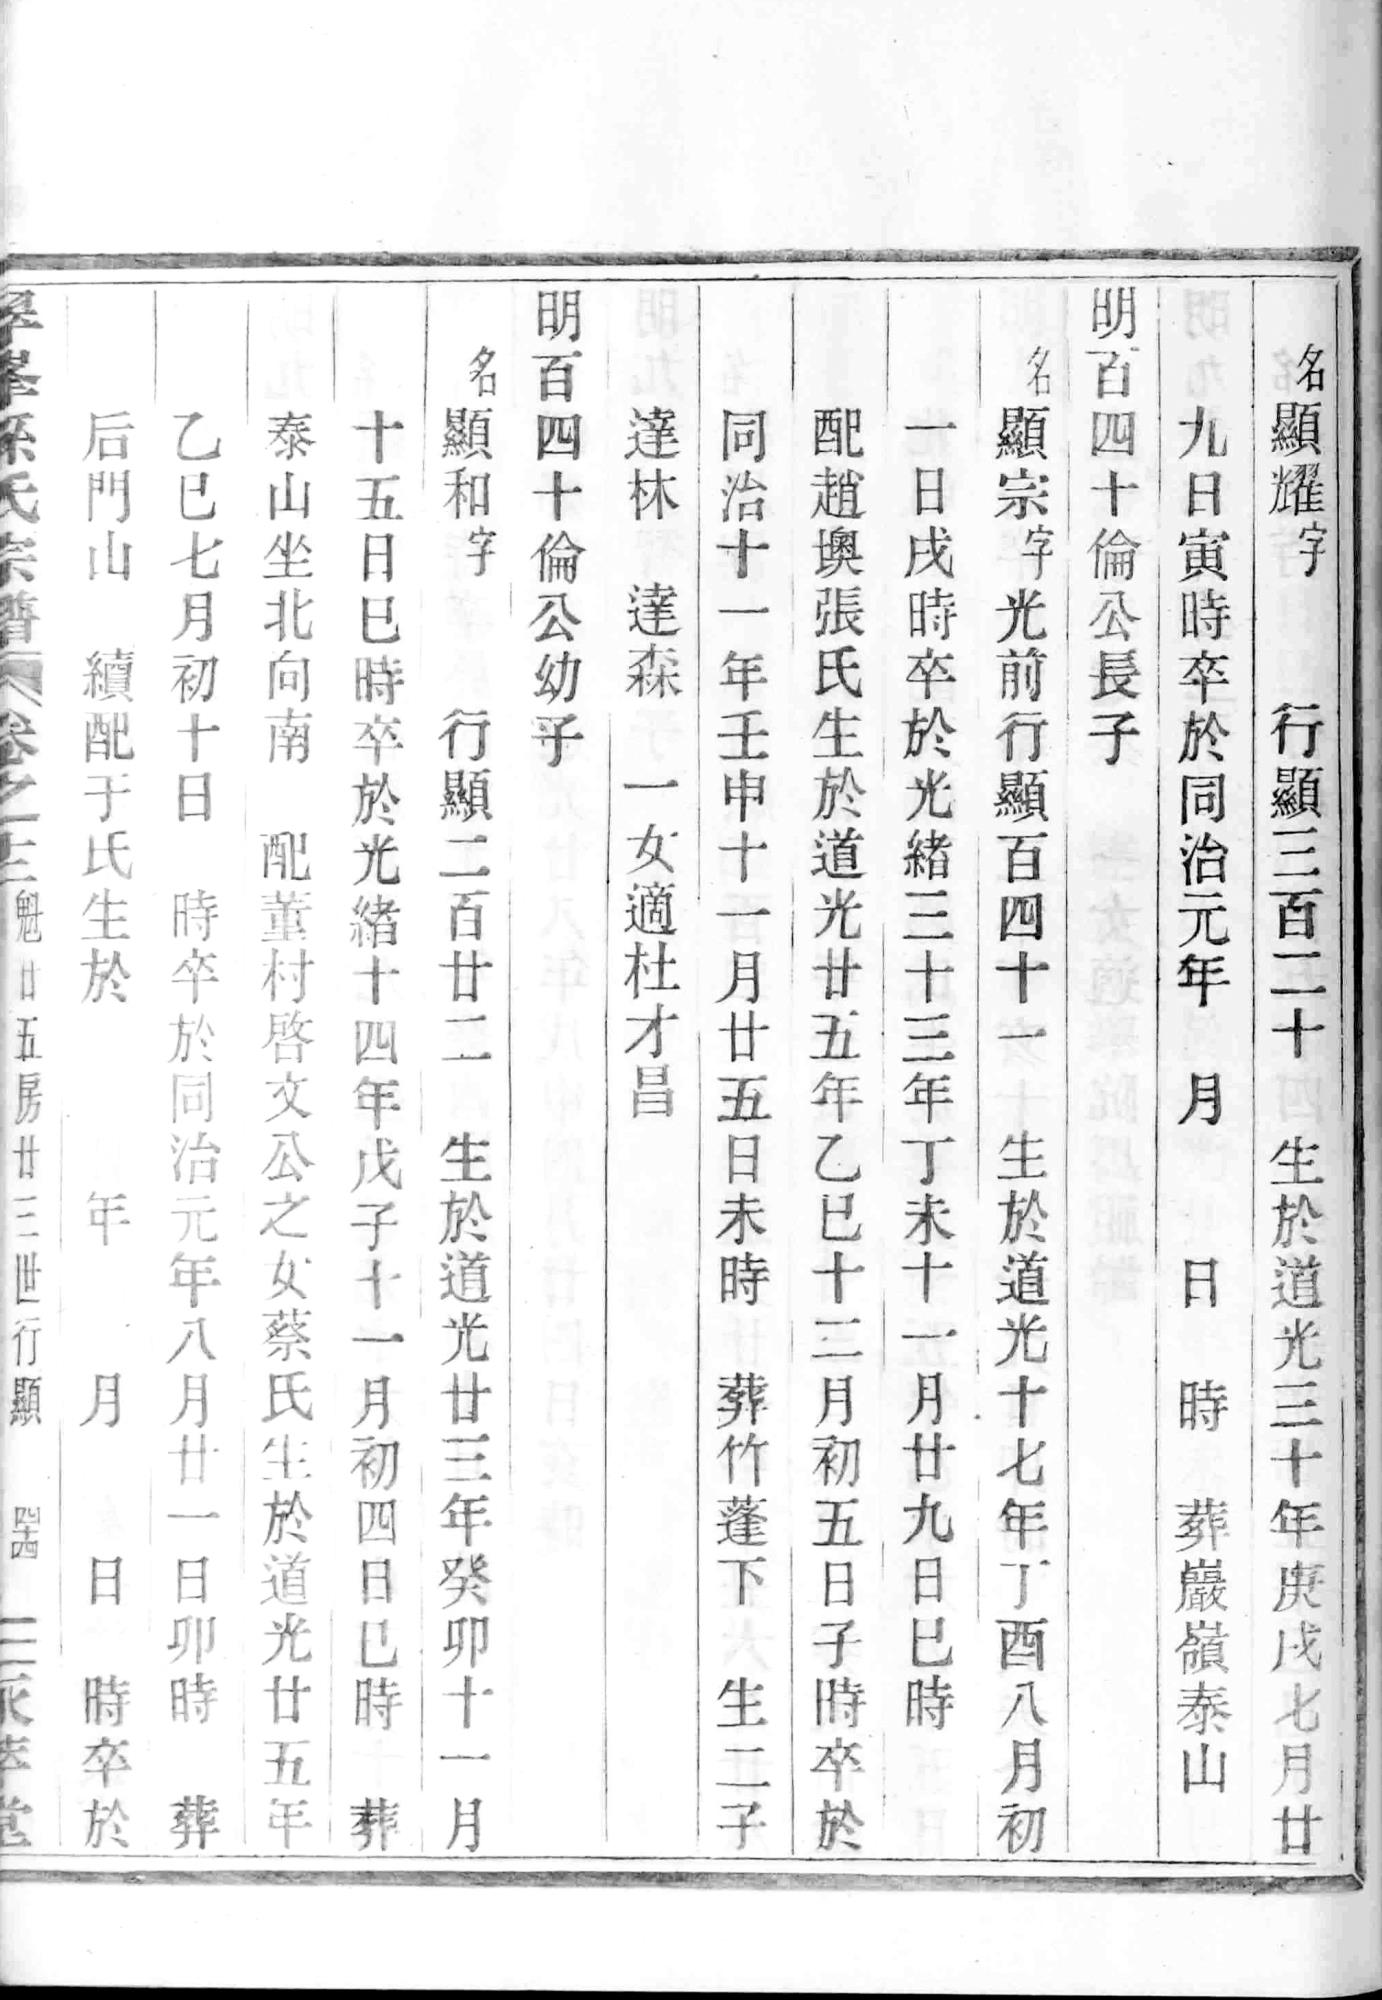 名顯耀字　行顯三百二十　生於道光三十年庚戌七月廿
九日寅時卒於同治元年　月　日　時　葬巖嶺泰山
明百四十倫公長子
名顯宗字光前行顯百四十一　生於道光十七年丁酉八月初
一日戌時卒於光緒三十三年丁未十一月廿九日巳時
配趙墺張氏生於道光廿五年乙巳十二月初五日子時卒於
同治十一年壬申十一月廿五日未時　葬竹蓬下　生二子
達林　達森　一女適杜才昌
明百四十倫公幼子
名顯和字　行顯二百廿二　生於道光廿三年癸卯十一月
十五日巳時卒於光緒十四年戊子十一月初四日巳時　葬
泰山坐北向南　配董村啓文公之女蔡氏生於道光廿五年
乙巳七月初十日　時卒於同治元年八月廿一日卯時　葬
后門山　續配于氏生於　年　月　日　時卒於
孫氏宗譜　卷之十三　魁廿五房廿三世行顯　四十四　堂